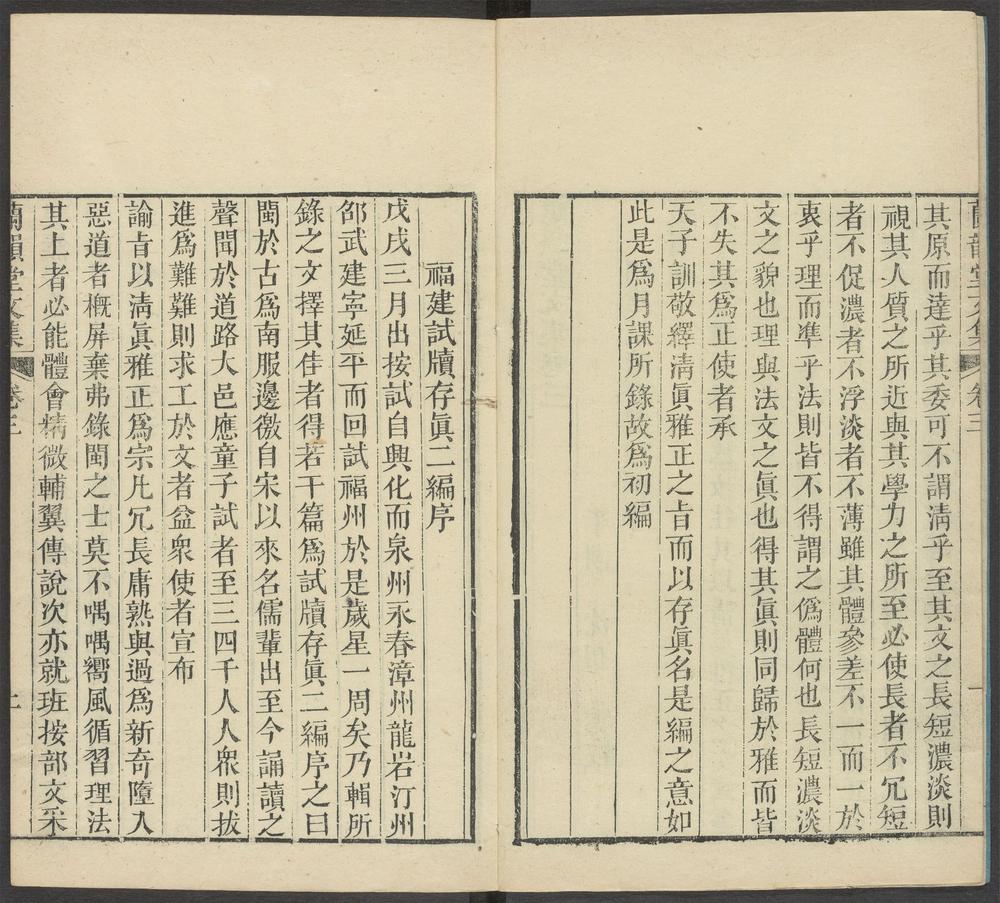 蘭韻堂文集 卷三 一
其原而達乎其委可不謂淸乎至其文之長短濃淡則
視其人質之所近與其學力之所至必使長者不冗短
者不促濃者不浮淡者不薄雖其體參差不一而一於
衷乎理而準乎法則皆不得謂之僞體何也長短濃淡
文之貌也理與法文之眞也得其眞則同歸於雅而皆
不失其爲正使者承
天子訓敬繹淸眞雅正之旨而以存眞名是編之意如
此是爲月課所錄故爲初編
福建試牘存眞二編序
戊戌三月出按試自興化而泉州永春漳州龍岩汀州
邵武建寧延平而回試福州於是歲星一周矣乃輯所
錄之文擇其佳者得若干篇爲試牘存眞二編序之曰
閩於古爲南服邊徼自宋以來名儒輩出至今誦讀之
聲聞於道路大邑應童子試者至三四千人人衆則拔
進爲難難則求工於文者益衆使者宣布
諭旨以淸眞雅正爲宗凡冗長庸熟與過爲新奇墮入
惡道者概屏棄弗錄閩之士莫不喁喁嚮風循習理法
其上者必能體會精微輔翼傳說次亦就班按部文采
蘭韻堂文集 卷三 二